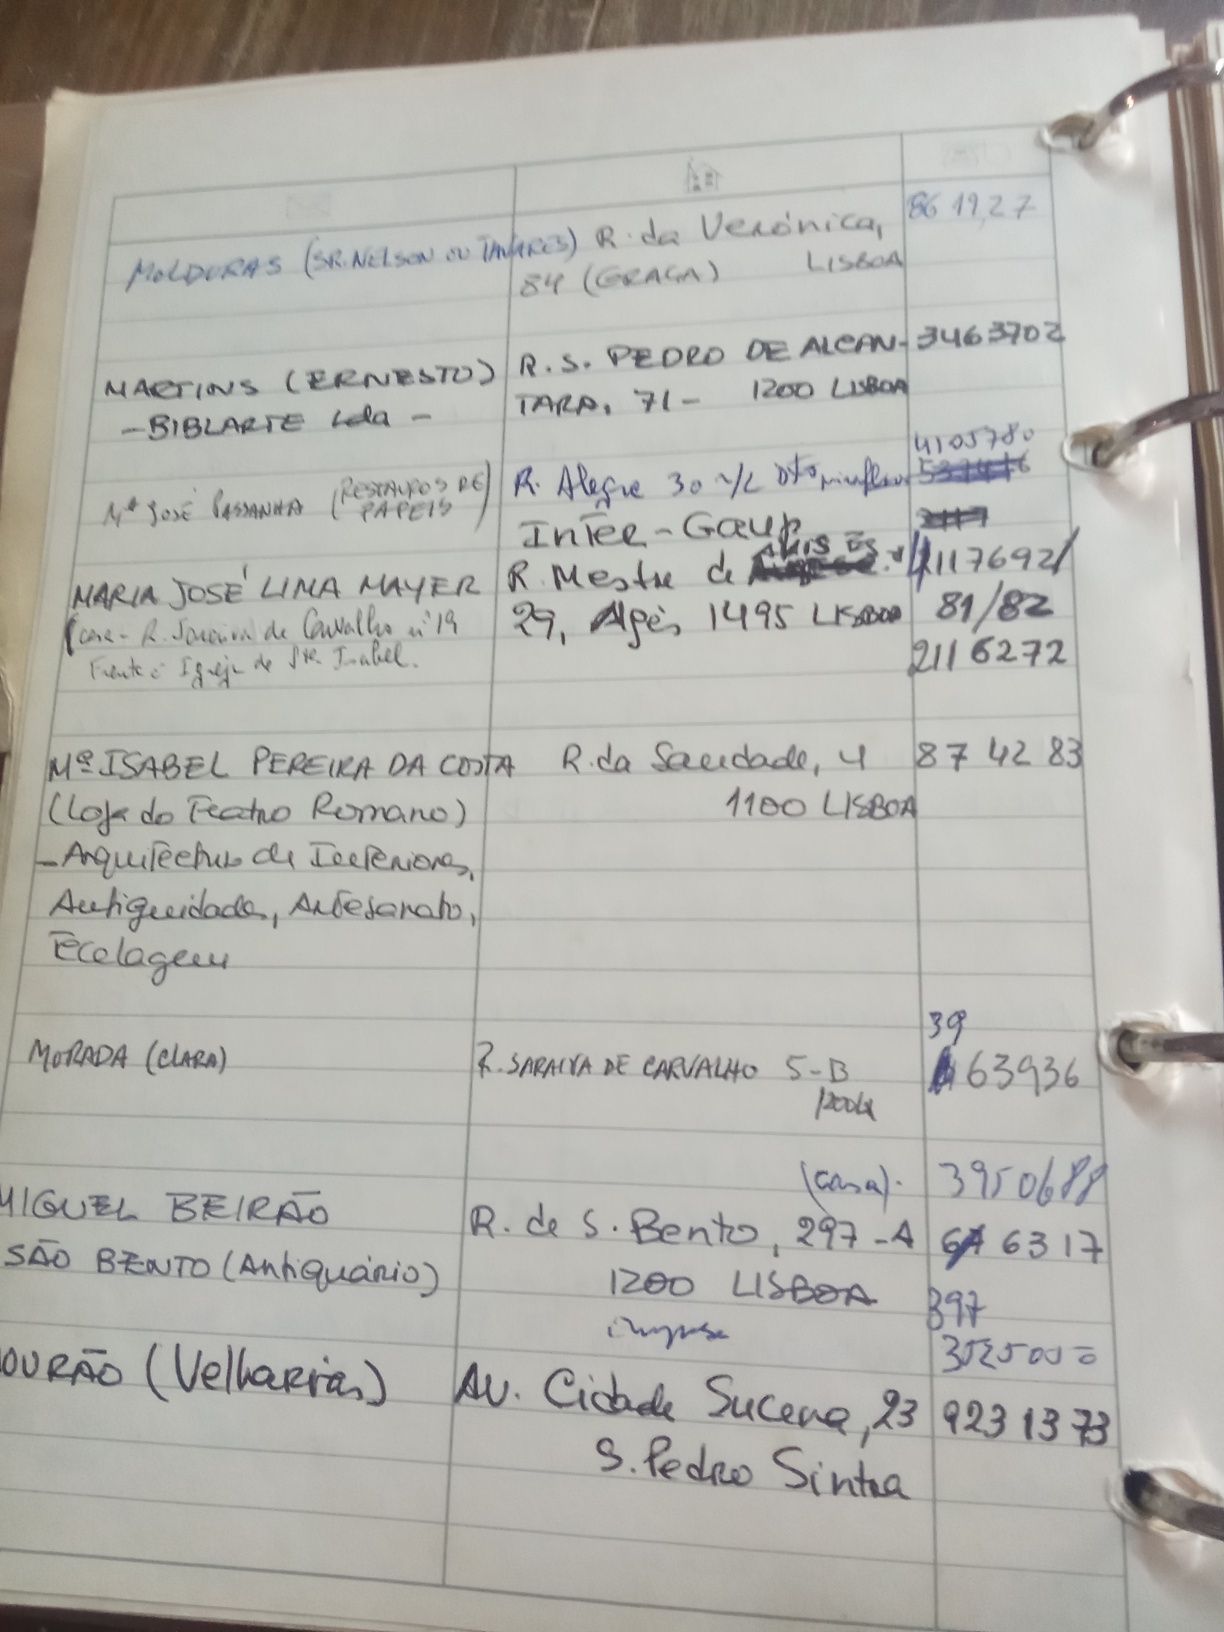 MOLDURAS (SR. NELSON OU TAVARES) R. da Verónica, 86 19,27
84 (GRAÇA) LISBOA
MARTINS (ERNESTO) R. S. PEDRO DE ALCAN- 3463702
- BIBLARTE Lda - TARA, 71 - 1200 LISBOA
4105780
Mª JOSÉ PASSANHA (RESTAUROS DE PAPEIS) R. Alegre 30
INTER-GAUP
MARIA JOSÉ LIMA MAYER R. Mestre de AVIS 4117692/
29, Algés 1495 LISBOA 81/82
(casa - R. Saraiva de Carvalho nº 19
Frente à Igreja de Stª. Isabel. 2116272
Mª ISABEL PEREIRA DA COSTA R. da Saudade, 4 87 42 83
(Loja do Teatro Romano) 1100 LISBOA
- Arquitectura de Interiores,
Antiguidades, Artesanato,
Tecelagem
39
MORADA (CLARA) R. SARAIVA DE CARVALHO 5-B 63936
1200 Lx
(casa). 3950688
MIGUEL BEIRÃO R. de S. Bento, 297-A 67 63 17
SÃO BENTO (Antiquário) 1200 LISBOA 397
3525000
OURÃO (Velharias) AV. Cidade Sucena, 23 923 13 73
S. Pedro Sintra